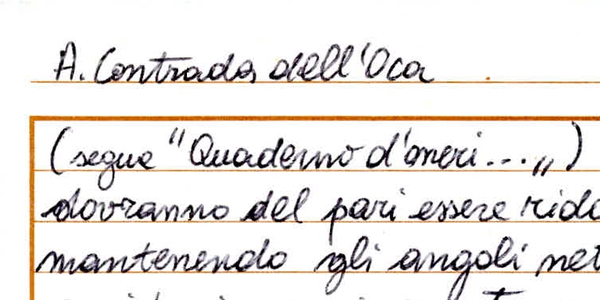 A. Contrada dell'Oca
(segue "Quaderno d'oneri...„)
dovranno del pari essere rido
mantenendo gli angoli net